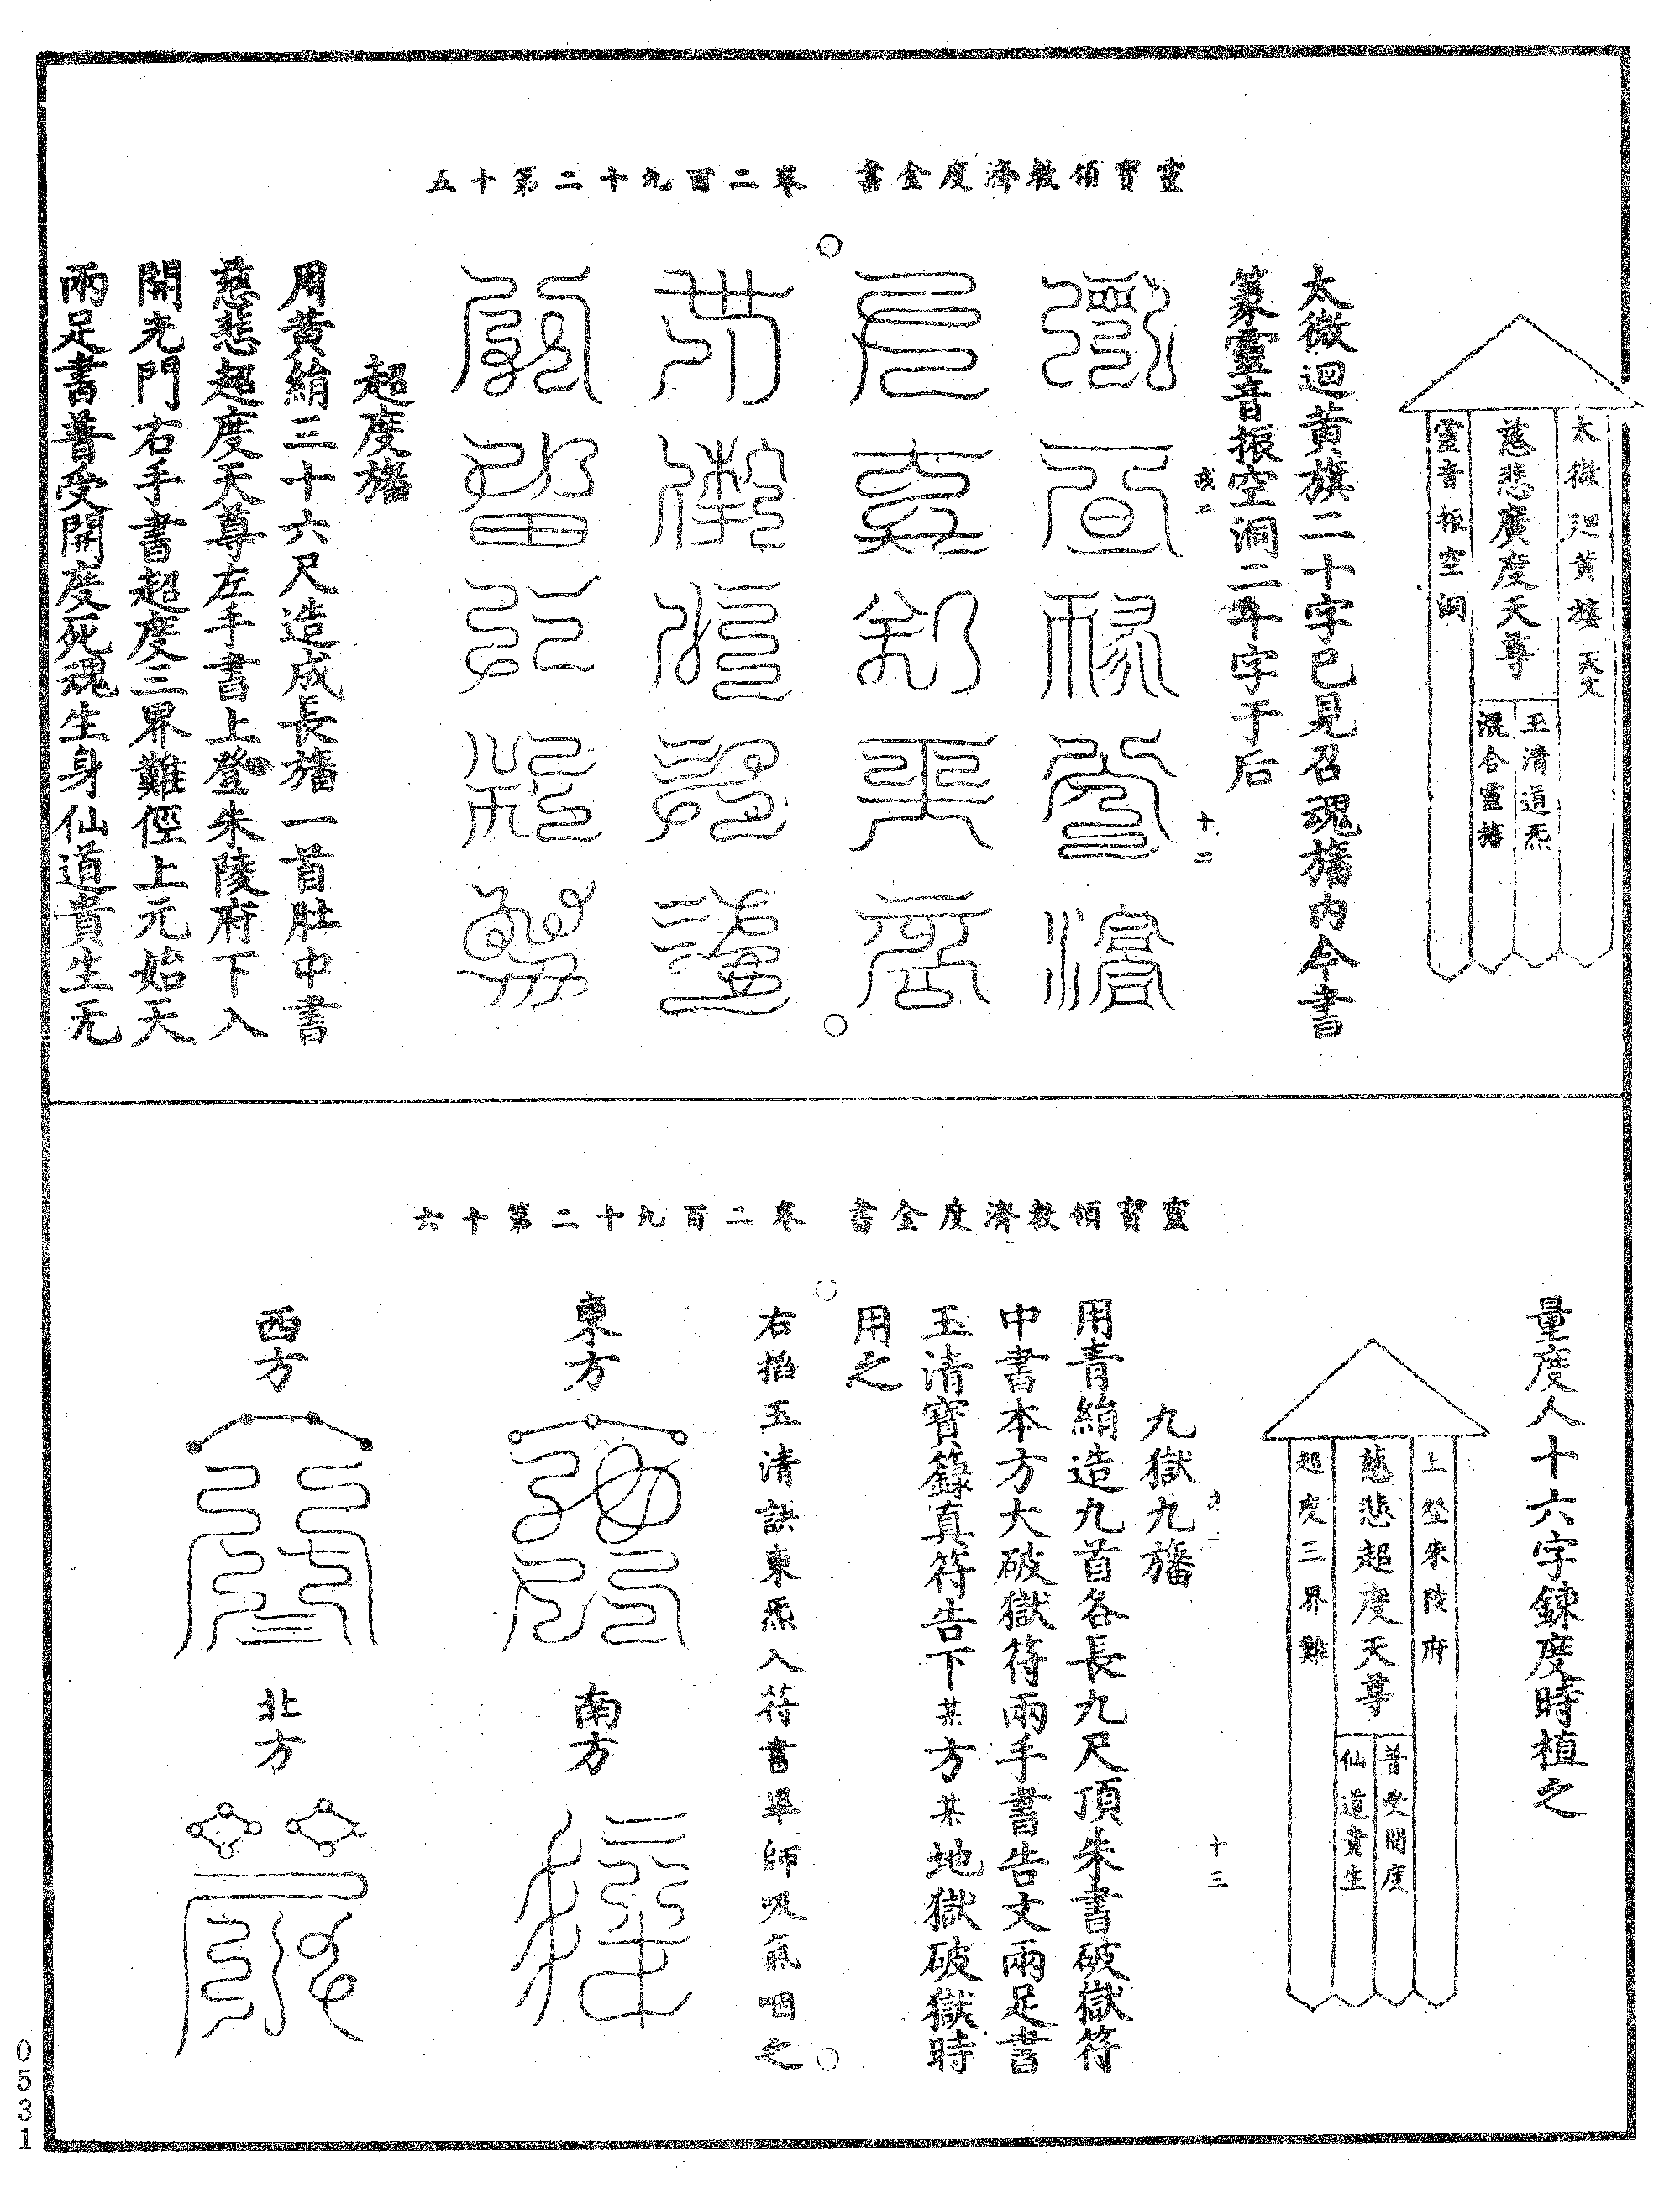 靈寶領教濟度金書　卷二百九十二第十五
太微迴黃旗天文
慈悲廣度天尊
玉清道炁
混合靈旛
靈音振空洞
太微迴黃旗二十字已見召魂旛内今書
篆靈音振空洞二十字于后
十二
超度旛
用黃絹三十六尺造成長旛一首肚中書
慈悲超度天尊左手書上登朱陵府下入
開光門右手書超度三界難徑上元始天
兩足書普受開度死魂生身仙道貴生无
靈寶領教濟度金書　卷二百九十二第十六
量度人十六字鍊度時植之
上登朱陵府
慈悲超度天尊
普受開度
仙道貴生
超度三界難
十三
九獄九旛
用青絹造九首各長九尺頂朱書破獄符
中書本方大破獄符兩手書告文兩足書
玉清寶籙真符告下某方某地獄破獄時
用之
右掐玉清訣東炁入符書畢師吸氣咽之
東方
南方
西方
北方
0531